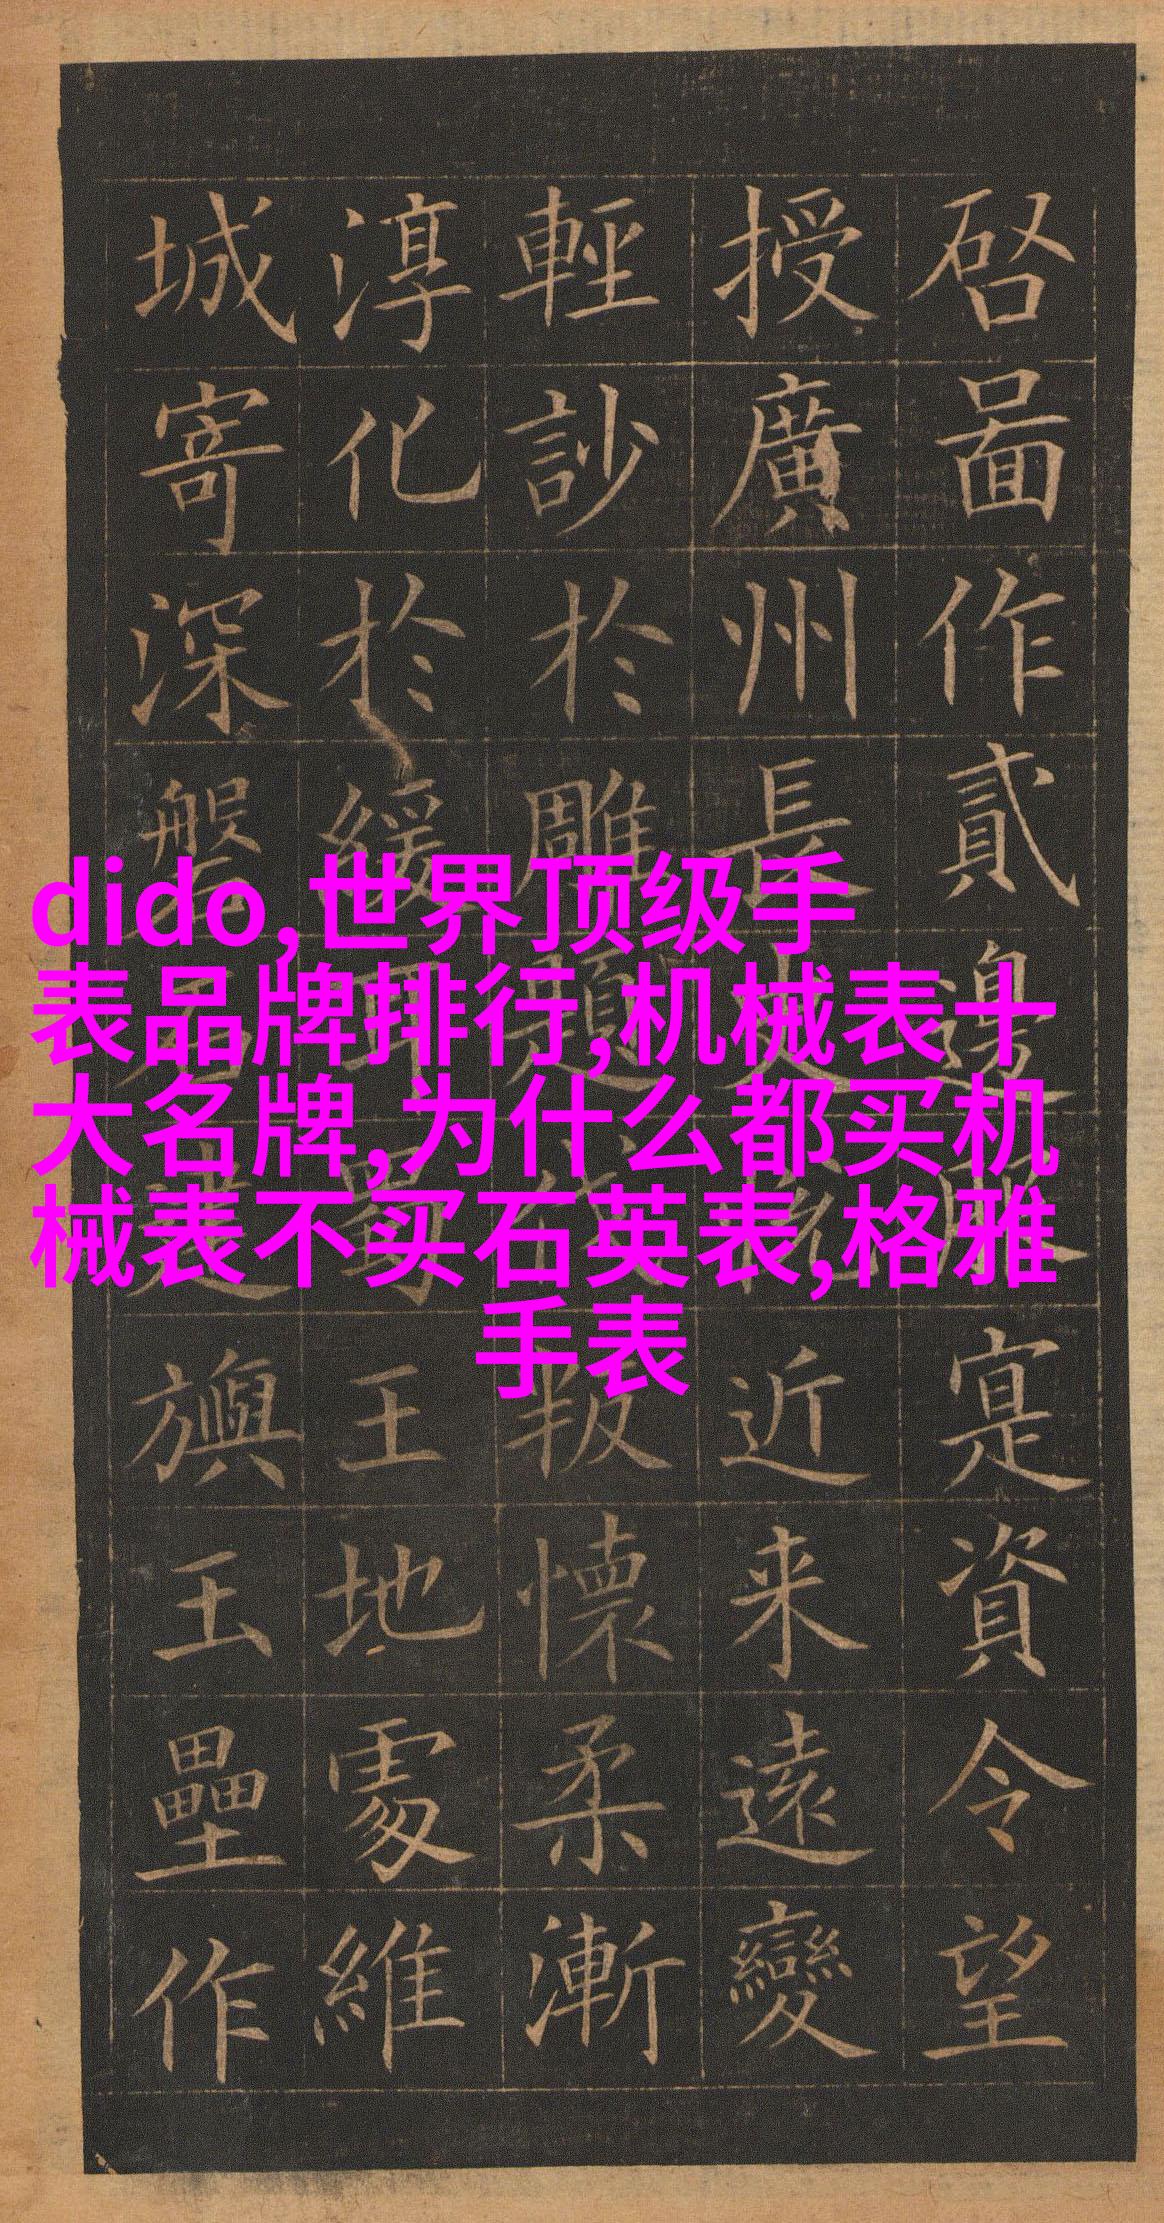 dido,世界顶级手
表品牌排行,机械表十
大名牌,为什么都买机
械表不买石英表,格雅
手表
啓啚作貳邊隅寔資令望
授廣州長史悅近来遠變
輕訬於雕題伐叛懷柔漸
淳化於緩耳蜀王地處維
城寄深磐石建旟玉壘作